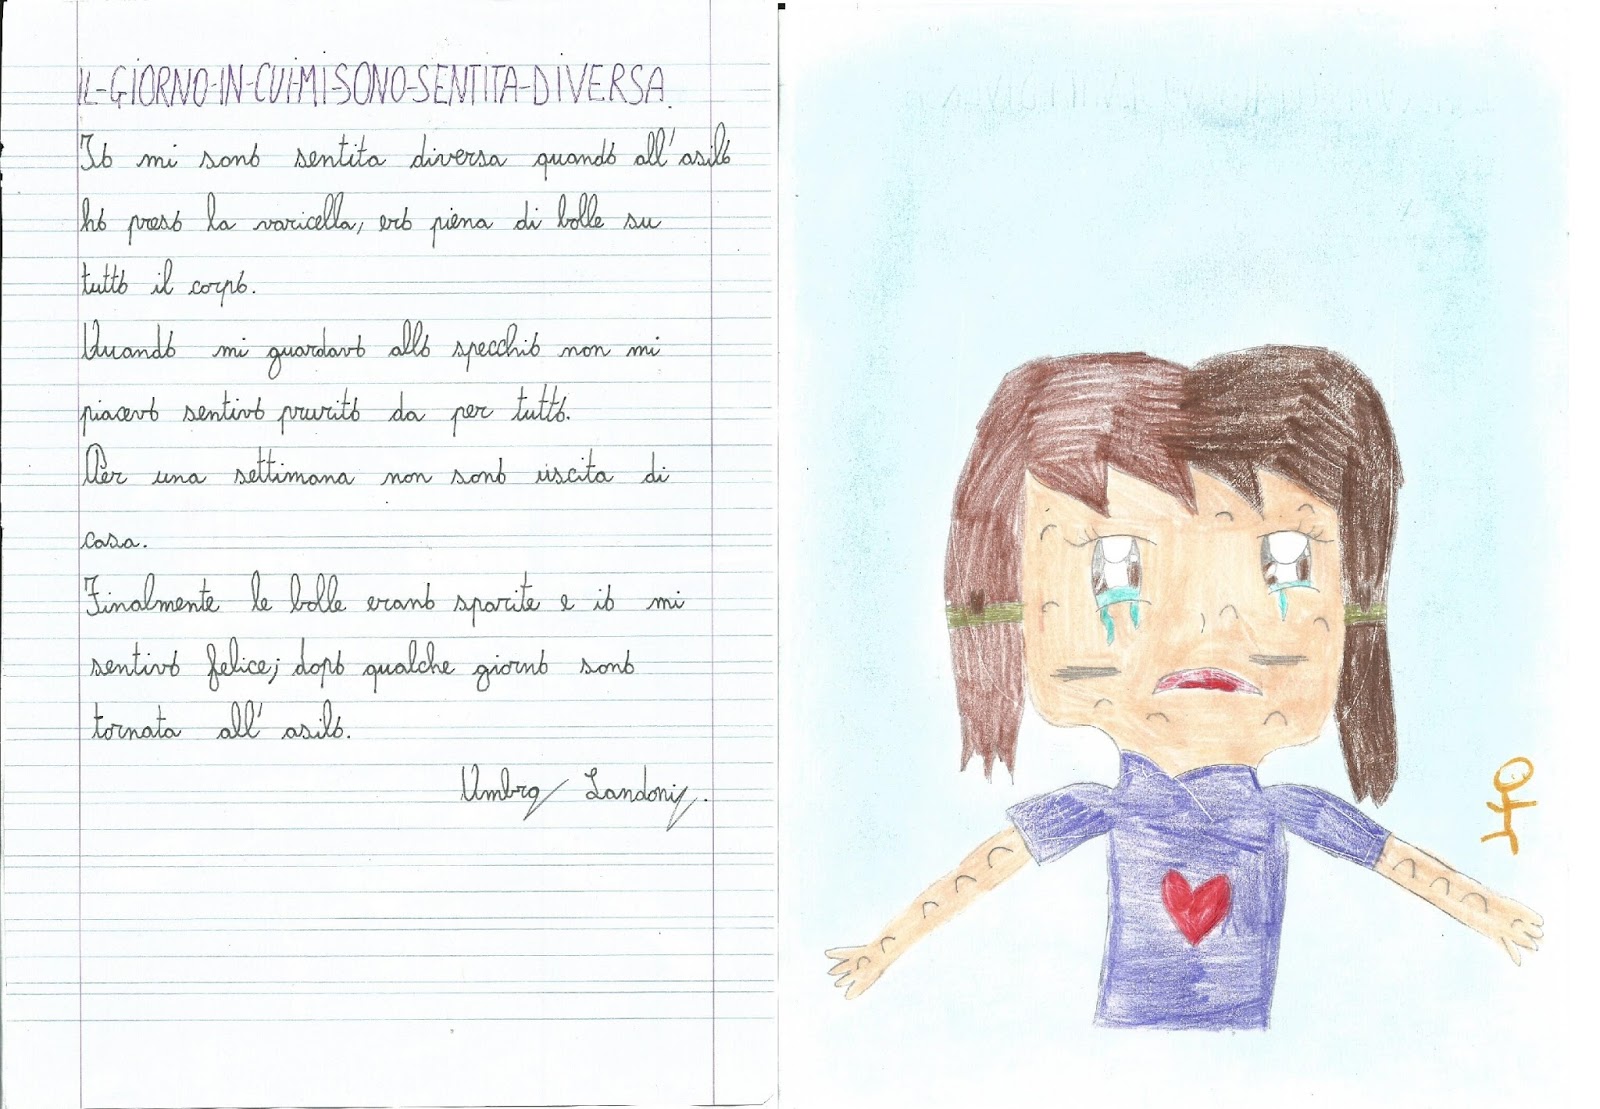 IL-GIORNO-IN-CUI-MI-SONO-SENTITA-DIVERSA.
Io mi sono sentita diversa quando all'asilo
ho preso la varicella, ero piena di bolle su
tutto il corpo.
Quando mi guardavo allo specchio non mi
piacevo sentivo prurito da per tutto.
Per una settimana non sono uscita di
casa.
Finalmente le bolle erano sparite e io mi
sentivo felice; dopo qualche giorno sono
tornata all'asilo.
Umbra Landoni.